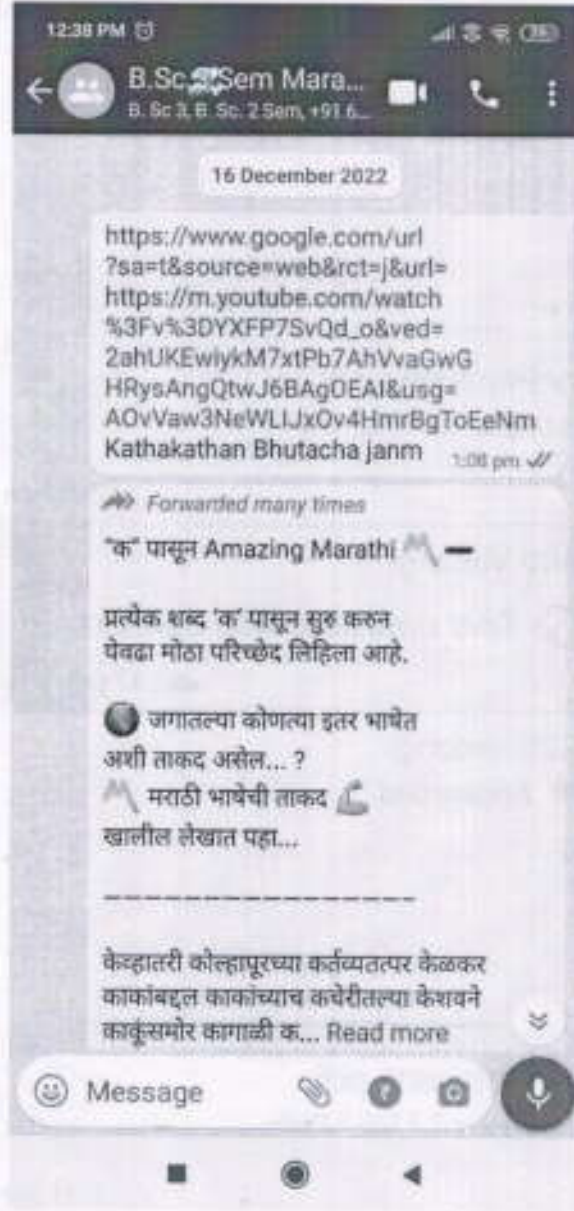 12:38 PM
B.Sc. Sem Mara...
B. Sc 3, B. Sc. 2 Sem, +91 6...
16 December 2022
https://www.google.com/url
?sa=t&source=web&rct=j&url=
https://m.youtube.com/watch
%3Fv%3DYXFP7SvQd_o&ved=
2ahUKEwiykM7xtPb7AhVvaGwG
HRysAngQtwJ6BAgOEAI&usg=
AOvVaw3NeWLIJxOv4HmrBgToEeNm
Kathakathan Bhutacha janm 1:08 pm
Forwarded many times
"क" पासून Amazing Marathi
प्रत्येक शब्द 'क' पासून सुरु करुन
येवढा मोठा परिच्छेद लिहिला आहे.
जगातल्या कोणत्या इतर भाषेत
अशी ताकद असेल... ?
मराठी भाषेची ताकद
खालील लेखात पहा...
----------------
केव्हातरी कोल्हापूरच्या कर्तव्यतत्पर केळकर
काकांबद्दल काकांच्याच कचेरीतल्या केशवने
काकूंसमोर कागाळी क... Read more
Message